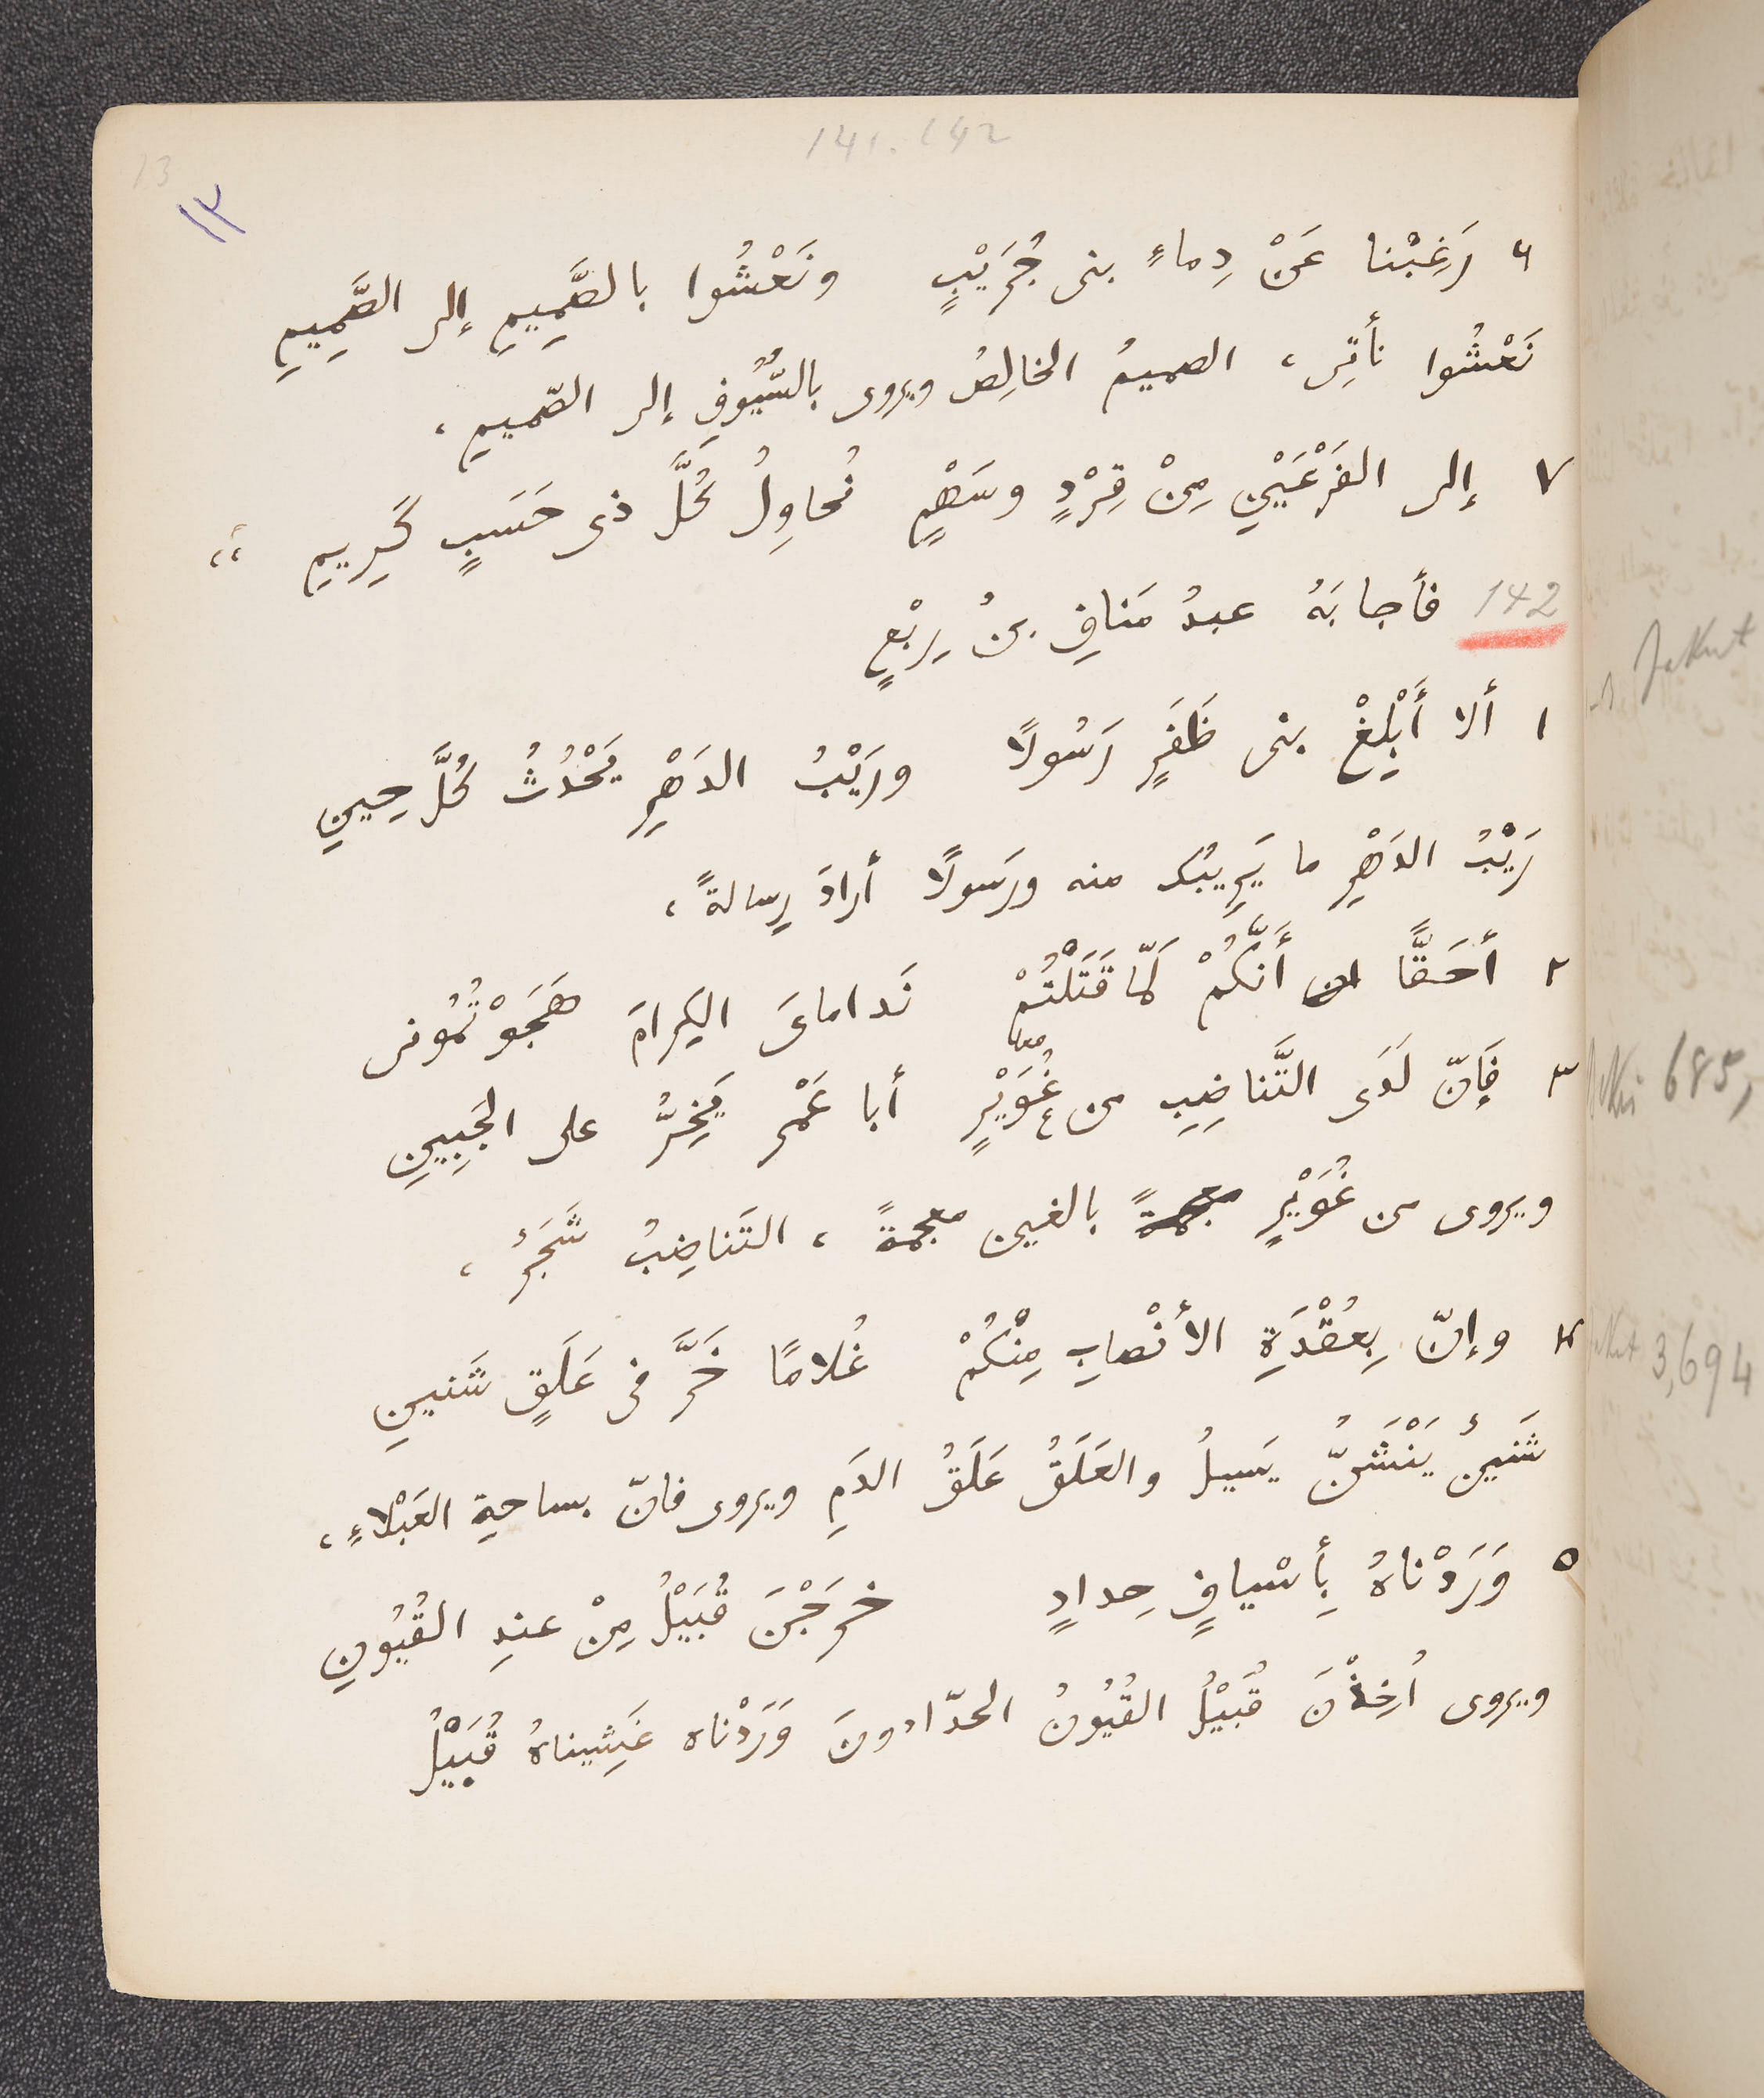 141. 142
13
١٣
٦ رَغِبْنا عَنْ دِماءِ بنى جُرَيْبٍ ونَعْشُوا بالصَّمِيمِ إلى الصَّمِيمِ
نَعْشُوا نأتِى، الصميمُ الخالِصُ ويروى بالسُّيُوفِ إلى الصّميمِ،
٧ إلى الفَرْعَيْنِ مِنْ قِرْدٍ وسَهْمٍ نُحاوِلُ كُلَّ ذى حَسَبٍ كَرِيمِ ،،
142 فأجابَهُ عبدُ مَنافِ بنُ رِبْعٍ
١ ألا أَبْلِغْ بنى ظَفَرٍ رَسُولًا ورَيْبُ الدَهْرِ يَحْدُثُ كُلَّ حِينِ
رَيْبُ الدَهْرِ ما يَرِيبُك منه ورَسولًا أرادَ رِسالةً،
٢ أحَقًّا أَنَّكُمْ لَمّا قَتَلْتُمْ نَدامايَ الكِرامَ هَجَوْتُمُونى
٣ فَإنّ لَدَى التَّناضِبِ من غُوَيْرٍ معا أبا عَمْرٍ يَخِرُّ على الجَبِينِ
ويروى من غُوَيْرٍ بالغين معجمةً، التَناضِبُ شَجَرٌ،
٤ وإنّ بِعُقْدَةِ الأنْصابِ مِنْكُمْ غُلامًا خَرَّ فى عَلَقٍ شَنينِ
شَنينٌ يَنْشَنُّ يَسيلُ والعَلَقُ عَلَقُ الدَمِ ويروى فانّ بساحةِ العَبْلاءِ،
٥ وَرَدْناهُ بِأسْيافٍ حِدادٍ خرَجْنَ قُبَيْلُ مِنْ عندِ القُيُونِ
ويروى أُخِذْنَ قُبَيْلُ القُيُونُ الحدّادونَ وَرَدْناه غَشِيناهُ قُبَيْلُ
Jakut
685,
3,694